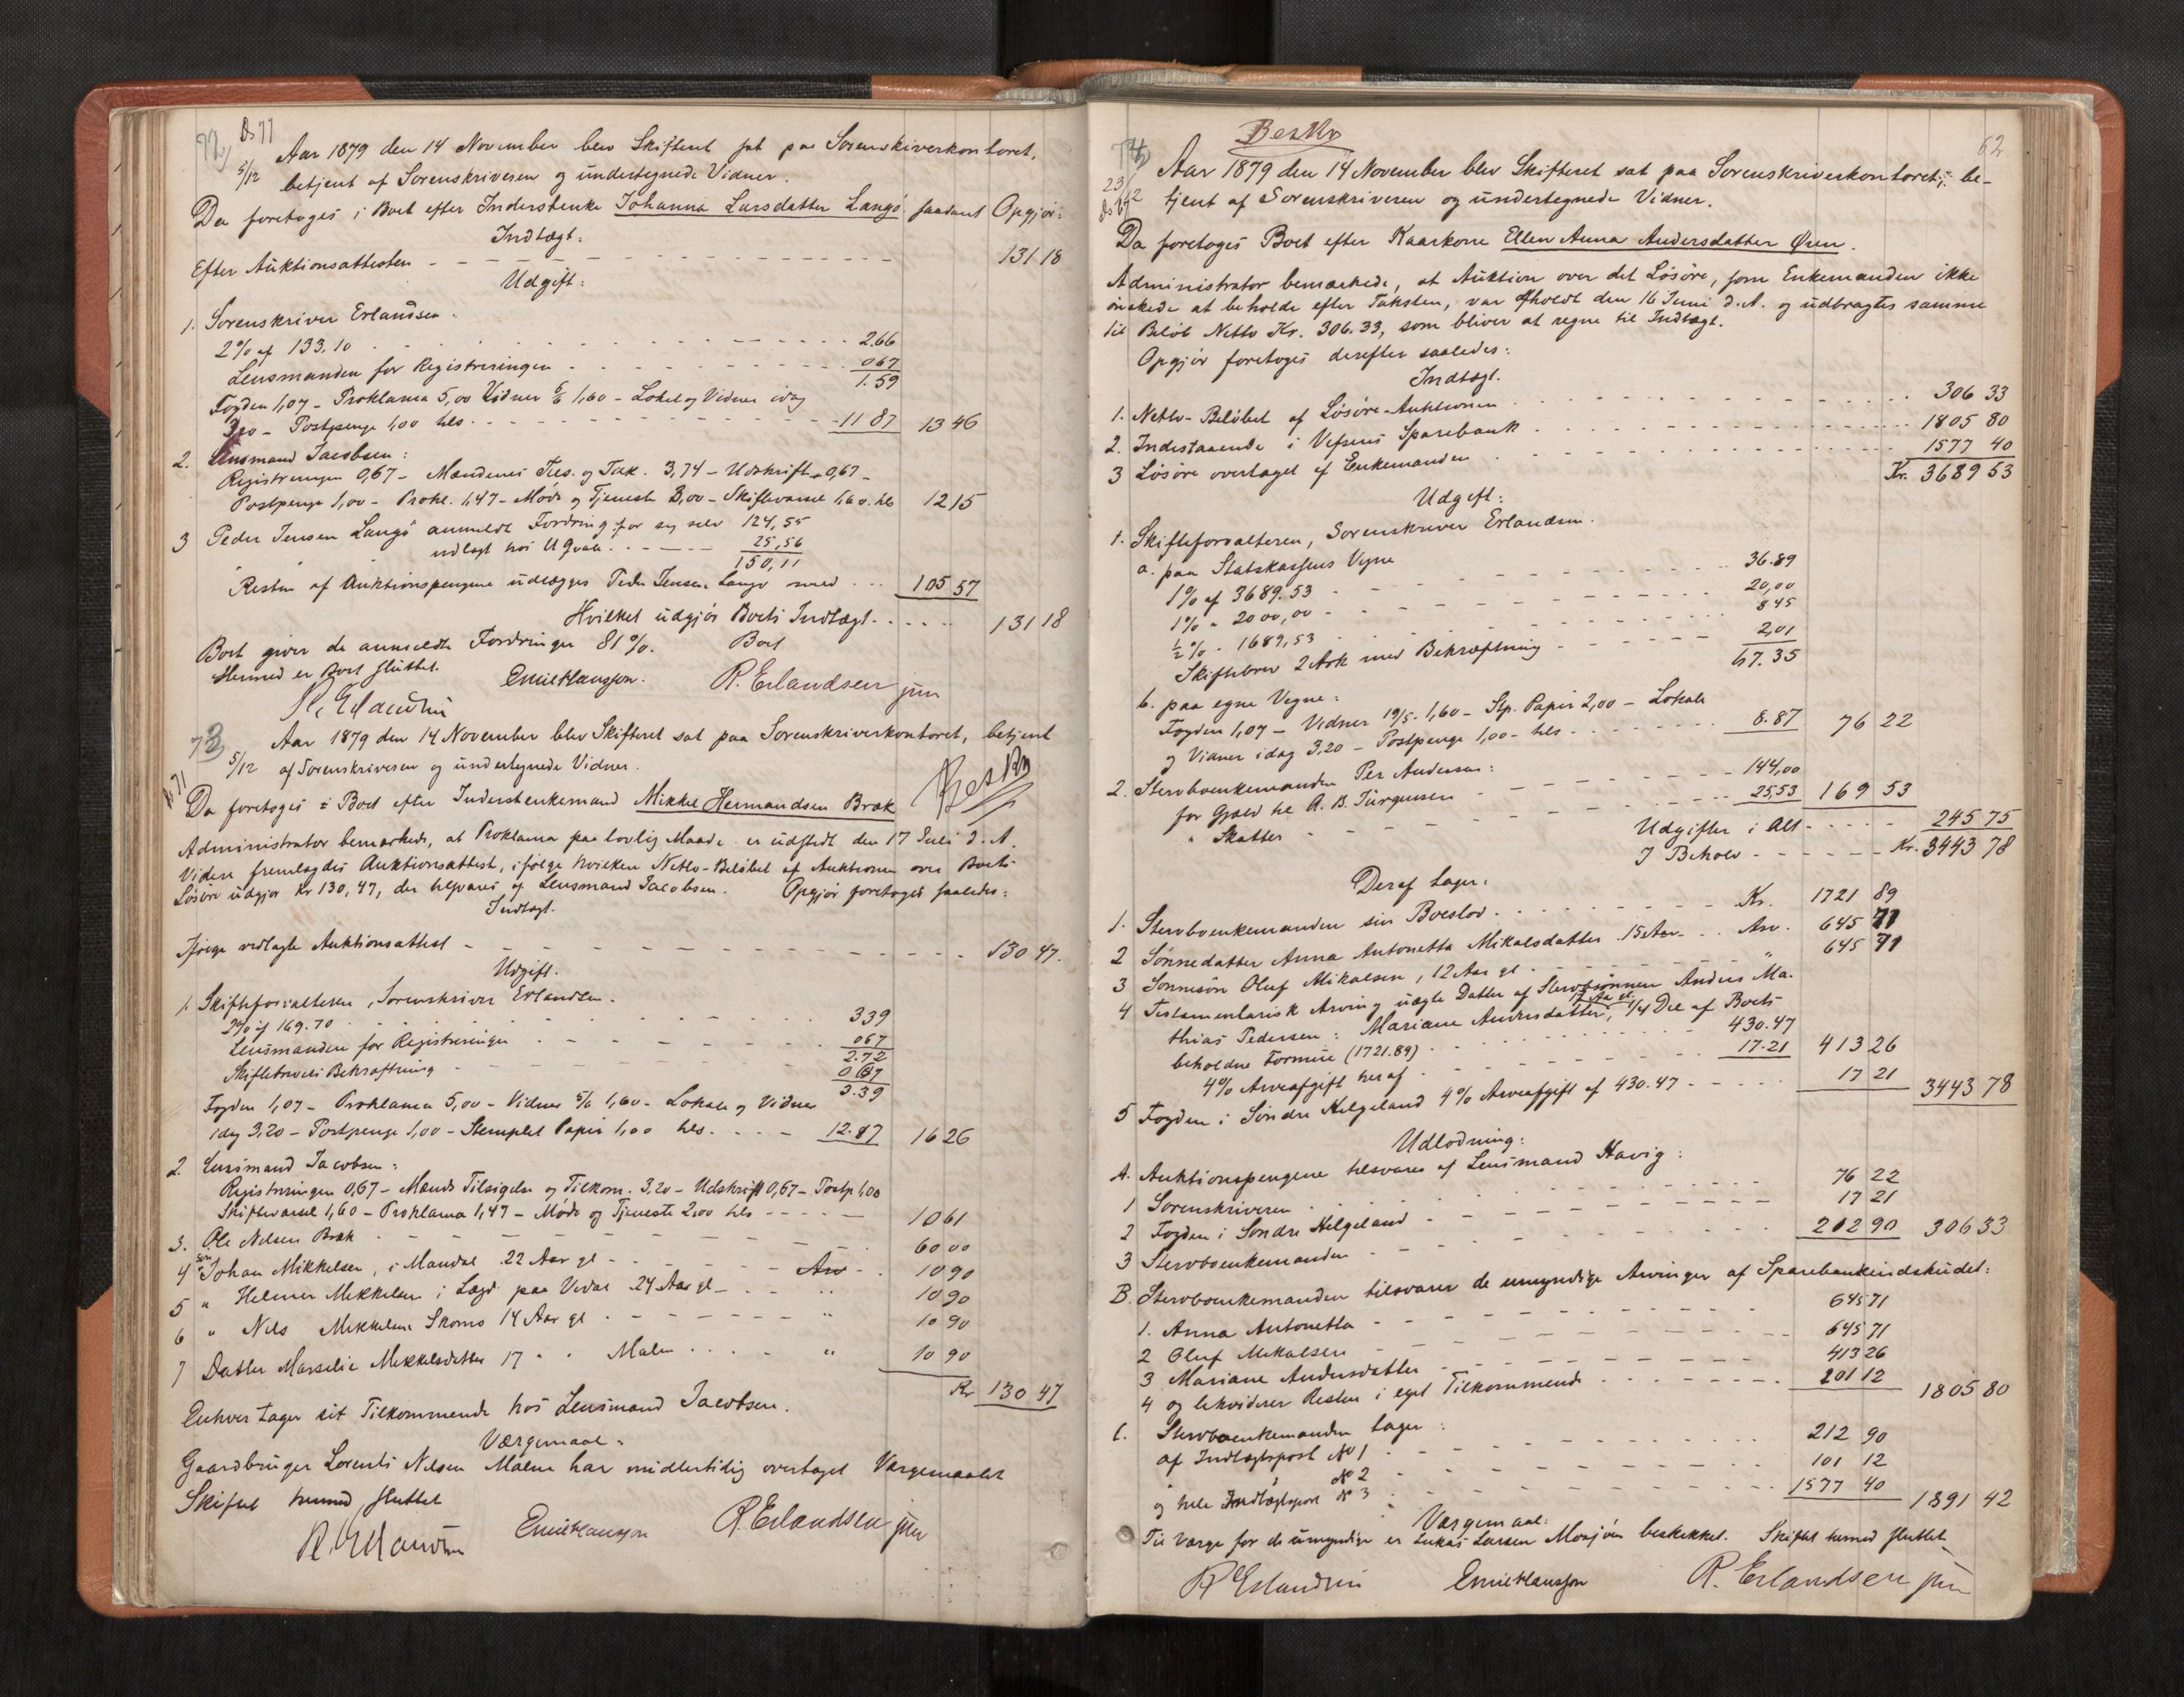 Ds 77
72)
5/12 Aar 1879 den 14 November blev Skifteret sat paa Sorenskriverkontoret,
betjent af Sorenskriveren og undertegnede Vidner.
Da foretoges i Boet efter Inderstenke Johanna Larsdatter Langö saadant Opgjör:
Indtægt:
Efter Auktionsattesten 131 18
Udgift:
1. Sorenskriver Erlandsen.
2% af 133.10 2.66
Lensmanden for Registreringen 0 67
1.59
Fogden 1,07 - Proklama 5,00 Vidner 5/6 1,60 - Lokal og Vidner idag
3,20 - Postpenge 1,00 tils. 11 87 13 46
2. Lensmand Jacobsen:
Registreringen 0,67 - Mændenes Tils. og Tak. 3,74 - Udskrift 0,67 -
Postpenge 1,00 - Prokl. 1,47 - Möde og Tjeneste 3,00 - Skiftevarsel 1,60. tils 12 15
3 Peder Jensen Langö anmeldt Fordring for sig selv 124,55
udlagt hos U Qvale 25,56
150,11
Resten af Auktionspengene udlægges Peder Jensen Langö med 105 57
Hvilket udgjör Boets Indtægt 131 18
Boet giver de anmeldte Fordringer 81%. Boet
Hermed er Boet sluttet.
R. Erlandsen Emil Hansson. R. Erlandsen jun
73
5/12 Aar 1879 den 14 November blev Skifteret sat paa Sorenskriverkontoret, betjent
af Sorenskriveren og undertegnede Vidner.
Da foretoges i Boet efter Inderstenkemand Mikkel Hermandsen Bræk Beskr
Administrator bemærkede, at Proklama paa lovlig Maade er udstedt den 17 Juli d. A.
Videre fremlagdes Auktionsattest, ifölge hvilken Netto-Belöbet af Auktionen over Boets
Lösöre udgjör Kr 130,47, der tilsvares af Lensmand Jacobsen. Opgjör foretoges saaledes:
Indtægt.
Ifölge vedlagte Auktionsattest 130 47.
Udgift.
1. Skifteforvalteren, Sorenskriver Erlandsen.
2% af 169.70 3 39
Lensmanden for Registreringen 0 67
2.72
Skiftebrevets Bekræftning 0 67
3.39
Fogden 1,07 - Proklama 5,00 - Vidner 5/6 1,60 - Lokale og Vidner
idag 3,20 - Postpenge 1,00 - Stemplet Papir 1,00 tils. 12.87 16 26
2. Lensmand Jacobsen:
Registreringen 0,67 - Mænds Tilsigelse og Tilkom. 3,20 - Udskrift 0,67 - Postp 1,00
Skiftevarsel 1,60 - Proklama 1,47 - Möde og Tjeneste 2,00 tils 10 61
3. Ole Nelsen Bræk 60 00
4 Sön Johan Mikkelsen, i Mandal 22 Aar gl Arv 10 90
5 " Helmer Mikkelsen i Lægd. paa Vedal 24 Aar gl " 10 90
6 " Nils Mikkelsen Skomo 14 Aar gl " 10 90
7 Datter Marselie Mikkelsdatter 17 " " Malm " 10 90
Kr 130 47
Enhver tager sit Tilkommende hos Lensmand Jacobsen.
Værgemaal:
Gaardbruger Lorents Nelsen Malm har midlertidig overtaget Værgemaalet
Skiftet hermed sluttet
R. Erlandsen Emil Hansson R. Erlandsen jun
62
Beskr
74)
23/12 Aar 1879 den 14 November blev Skifteret sat paa Sorenskriverkontoret, be-
tjent af Sorenskriveren og undertegnede Vidner.
Da foretoges Boet efter Kaarkone Ellen Anna Andersdatter Øren.
Administrator bemærkede, at Auktion over det Lösöre, som Enkemanden ikke
önskede at beholde efter Taksten, var afholdt den 16 Juni d. A. og udbragtes samme
til Belöb Netto Kr. 306.33, som bliver at regne til Indtægt.
Opgjör foretoges derefter saaledes:
Indtægt.
1. Netto-Belöbet af Lösöre-Auktionen 306 33
2. Indestaaende i Vefsens Sparebank 1805 80
3 Lösöre overtaget af Enkemanden 1577 40
Kr. 3689 53
Udgift:
1. Skifteforvalteren, Sorenskriver Erlandsen.
a. paa Statskassens Vegne
1% af 3689.53 36.89
1% " 2000,00 20,00
½% - 1689,53 8 45
Skiftebrev 2 Ark med Bekræftning 2,01
67.35
b. paa egne Vegne:
Fogden 1,07 - Vidner 19/5. 1,60 - Stp. Papir 2,00 - Lokale
og Vidner idag 3,20 - Postpenge 1,00 - tils 8.87 76 22
2. Stervboenkemanden Per Andersen:
for Gjæld til A. B. Jürgensen 144,00
" Skatter 25,53 169 53
Udgifter i Alt 245 75
I Behold Kr. 3443 78
Deraf tager:
1. Stervboenkemanden sin Boeslod Kr. 1721 89
2 Sönnedatter Anna Antonetta Mikalsdatter 15 Aar Arv. 645 71
3 Sönnesön Oluf Mikalsen, 12 Aar gl " 645 71
4 Testamentarisk Arving uægte Datter af Stervbsönnen Anders Ma-
thias Pedersen: Mariane Andersdatter, 17 Aar gl. 1/4 Del af Boets
beholdne Formue (1721.89) 430.47
4% Arveafgift heraf 17.21 413 26
5 Fogden i Söndre Helgeland 4% Arveafgift af 430.47 17 21 3443 78
Udlodning:
A. Auktionspengene tilsvares af Lensmand Havig:
1 Sorenskriveren 76 22
2 Fogden i Söndre Helgeland 17 21
3 Stervboenkemanden 212 90 306 33
B. Stervboenkemanden tilsvarer de umyndige Arvinger af Sparebankindskudet:
1. Anna Antonetta 645 71
2 Oluf Mikalsen 645 71
3 Mariane Andersdatter 413 26
4 og likviderer Resten i eget Tilkommende 101 12 1805 80
C. Stervboenkemanden tager:
af Indtægtspost № 1 212 90
" № 2 101 12
og hele Indtægtspost № 3 1577 40 1891 42
Værgemaal:
Til Værge for de umyndige er Lukas Larsen Mosjöen beskikket. Skiftet hermed sluttet
R Erlandsen Emil Hansson R. Erlandsen jun